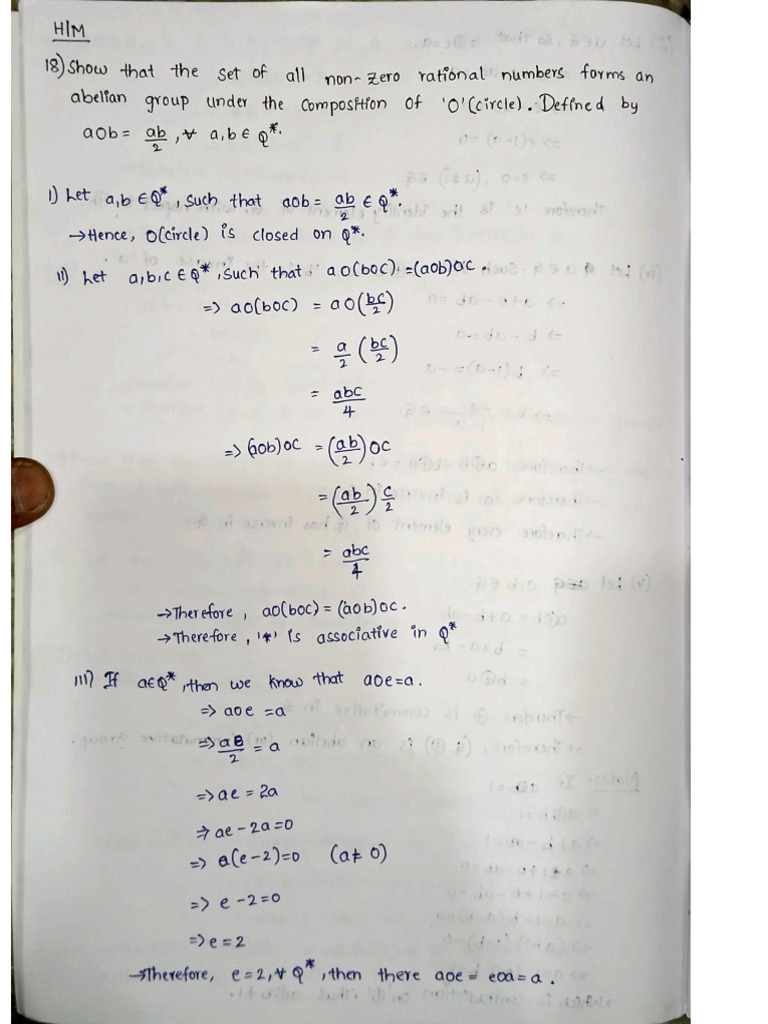 H/M
18) Show that the set of all non-zero rational numbers forms an
abelian group under the composition of 'O'(circle). Defined by
aOb = ab/2, ∀ a,b ∈ Q*.
i) Let a,b ∈ Q*, such that aob = ab/2 ∈ Q*.
→Hence, O(circle) is closed on Q*.
ii) Let a,b,c ∈ Q*, such that aO(boc) = (aob)oc.
=> aO(boc) = aO(bc/2)
= a/2 (bc/2)
= abc/4
=> (aob)oc = (ab/2)oc
= (ab/2) c/2
= abc/4
→Therefore, aO(boc) = (aob)oc.
→Therefore, '*' is associative in Q*
iii) If a∈Q*, then we know that aoe=a.
=> aoe = a
=> ae/2 = a
=> ae = 2a
=> ae-2a=0
=> a(e-2)=0 (a≠0)
=> e-2=0
=> e=2
→Therefore, e=2, ∀ Q*, then there aoe = eoa = a.